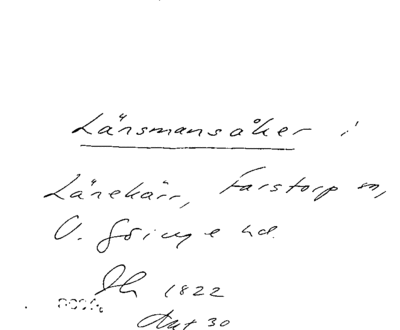 Länsmansåker i
Lärkekärr, Farstorp sn,
V. Göinge hd.
Lh 1822
Akt 30